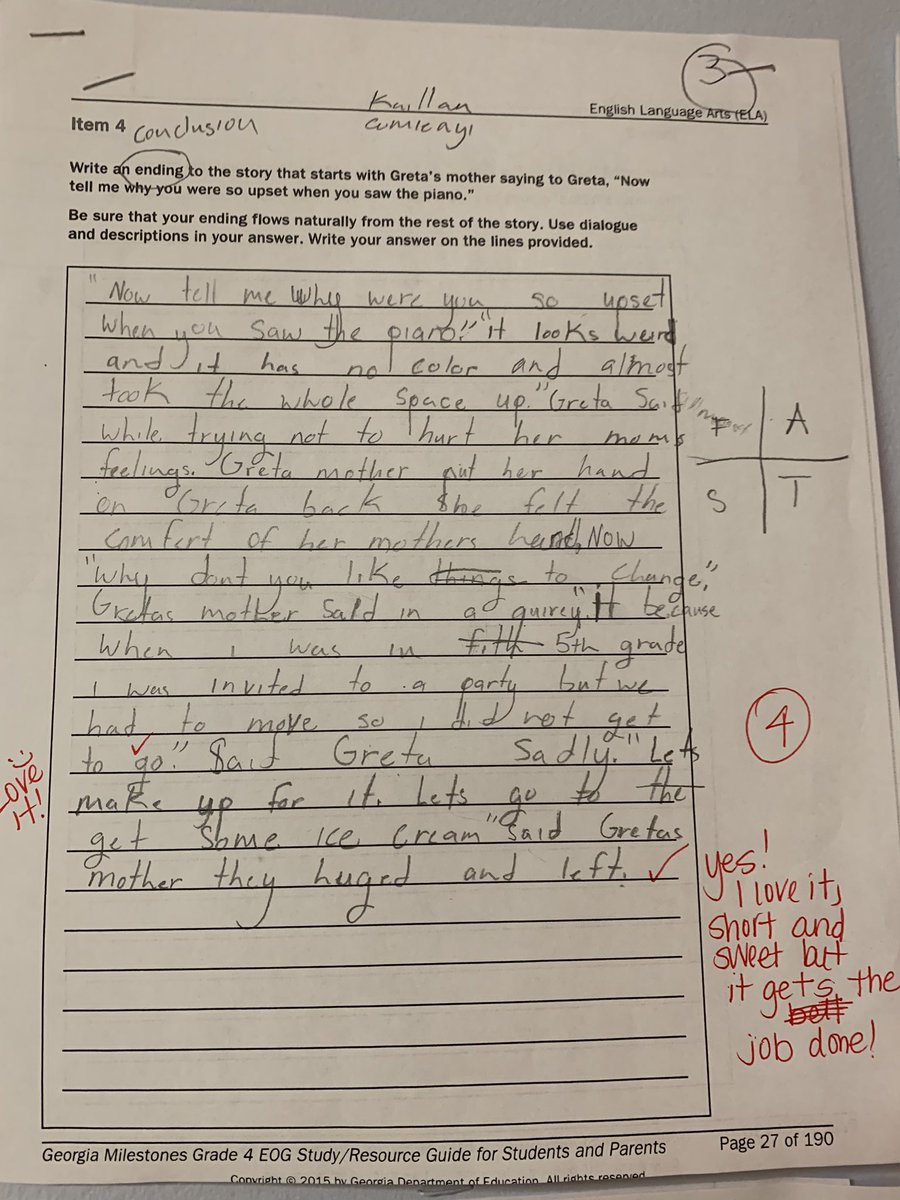 3
Kaillan
English Language Arts (ELA)
Item 4 conclusion
Write an ending to the story that starts with Greta's mother saying to Greta, "Now
tell me why you were so upset when you saw the piano."
Be sure that your ending flows naturally from the rest of the story. Use dialogue
and descriptions in your answer. Write your answer on the lines provided.
"Now tell me Why were you so upset
when you saw the piano." "it looks weird
and it has no color and almost
took the whole space up." Greta Sait
while trying not to hurt her moms
feelings. Greta mother put her hand
on Greta back She felt the
comfert of her mothers hand, NOW
"Why dont you like things to change,"
Gretas mother Said in a quirey". "It because
When i was in fith 5th grade
I was invited to a party but we
had to move so i did not get
to go." Sait Greta Sadly. "Lets
make up for it. Lets go to the
get Some ice cream" Said Gretas
mother they huged and left.
F A
S T
Love
it!
4
yes!
I love it,
short and
sweet but
it gets the
job done!
Georgia Milestones Grade 4 EOG Study/Resource Guide for Students and Parents
Page 27 of 190
Copyright © 2015 by Georgia Department of Education. All rights reserved.